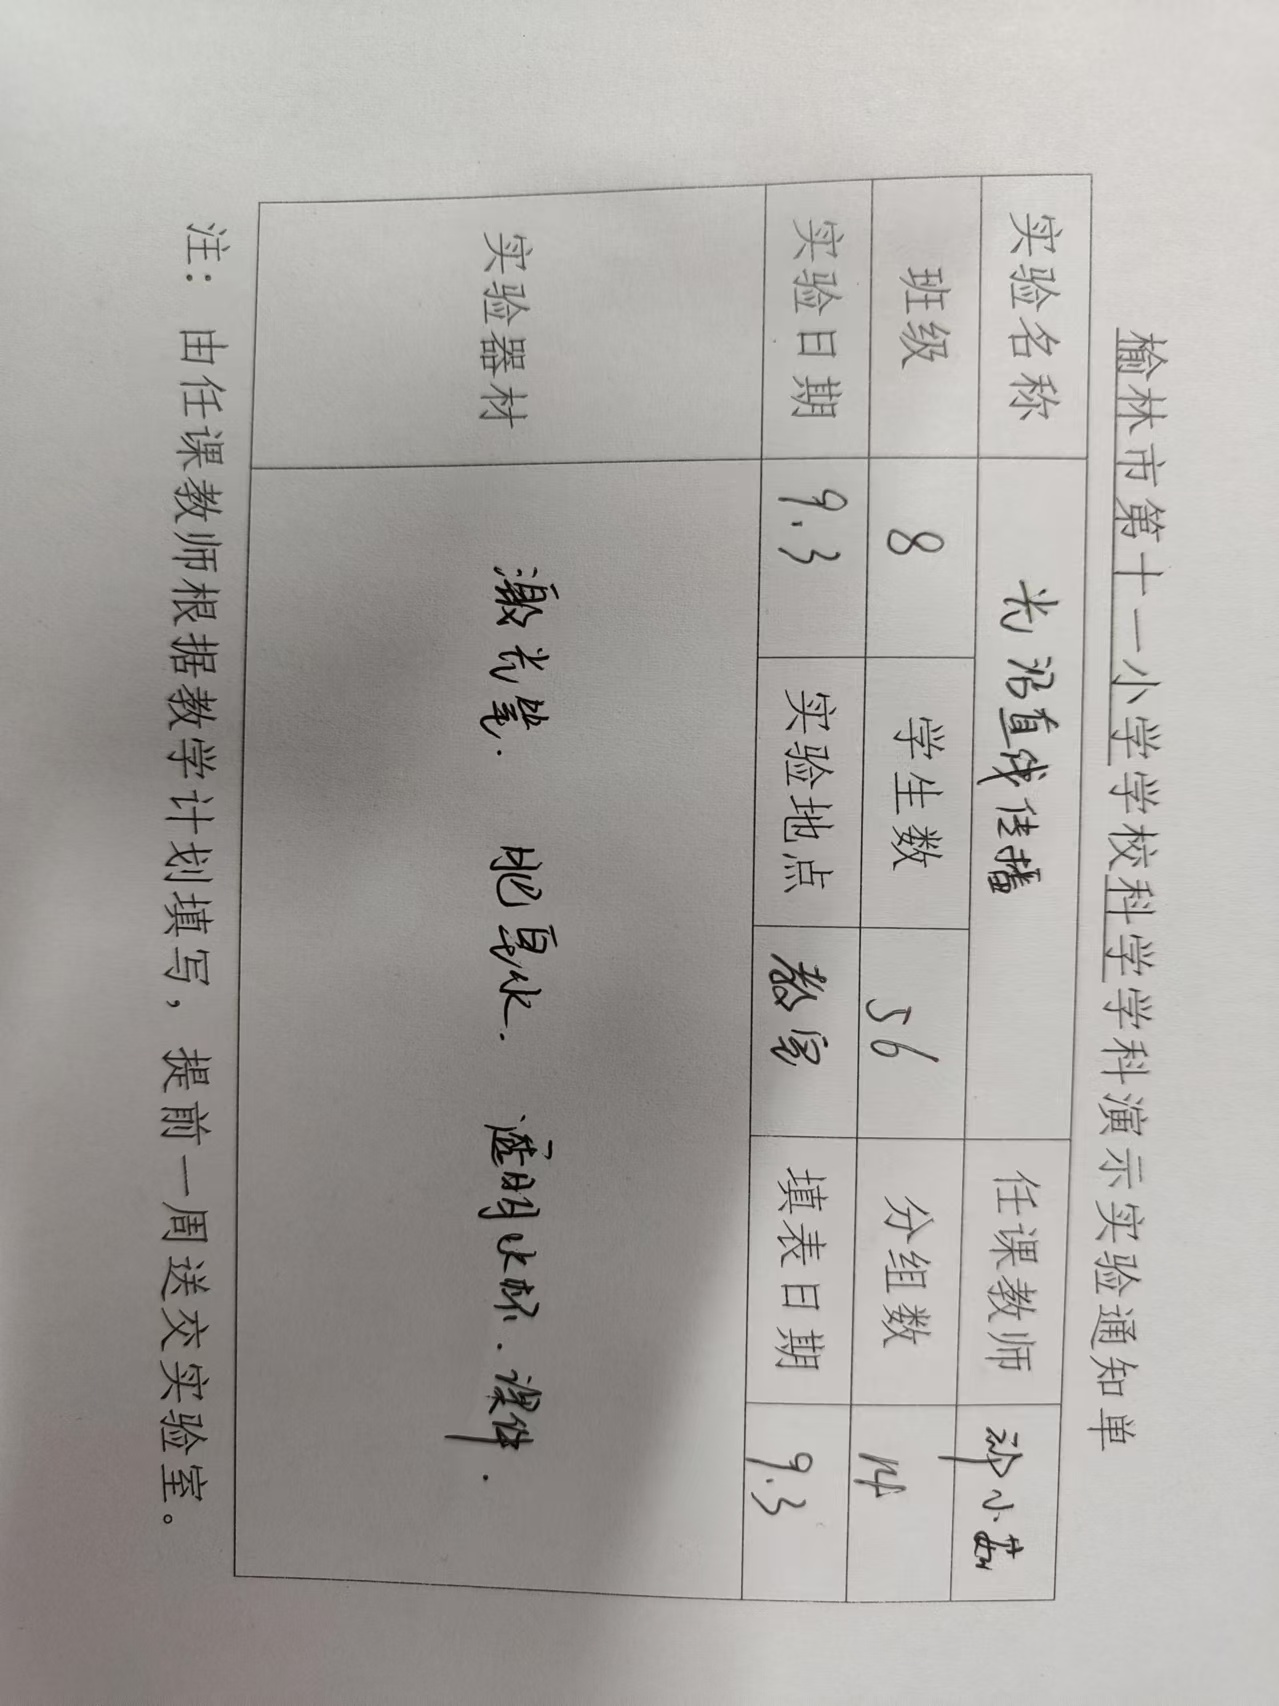 榆林市第十一小学学校科学学科演示实验通知单
实验名称 光沿直线传播 任课教师 小茹
班级 8 学生数 56 分组数 14
实验日期 9.3 实验地点 教室 填表日期 9.3
实验器材 激光笔. 肥皂水. 透明水杯. 课件.
注: 由任课教师根据教学计划填写, 提前一周送交实验室。